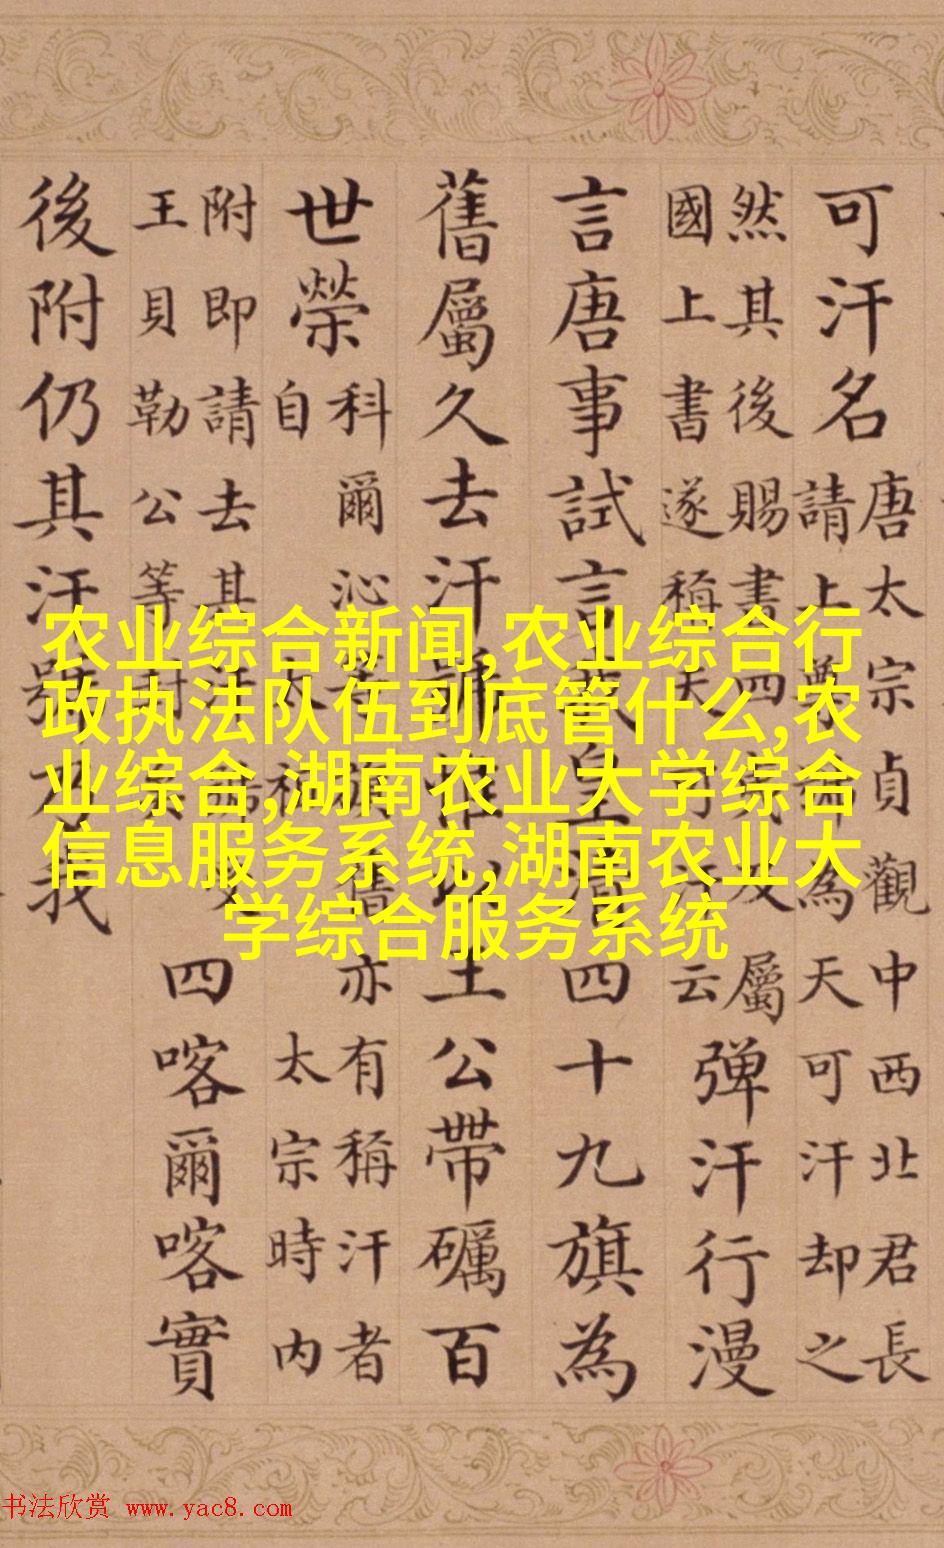 可汗名
唐太宗貞觀中西北君長
請上尊號為天可汗却之
然其後賜書四夷及屬
國上書遂稱天可汗云
彈汗行漫
言唐事試言我皇清四十九旗為
舊屬久去汗號惟以王公帶礪百
世榮
科爾沁舊亦有稱汗者
自太宗時内
附即請去其汗號
王貝勒公等封
四喀爾喀實
後附仍其汗號為我
农业综合新闻,农业综合行
政执法队伍到底管什么,农
业综合,湖南农业大学综合
信息服务系统,湖南农业大
学综合服务系统
书法欣赏 www.yac8.com